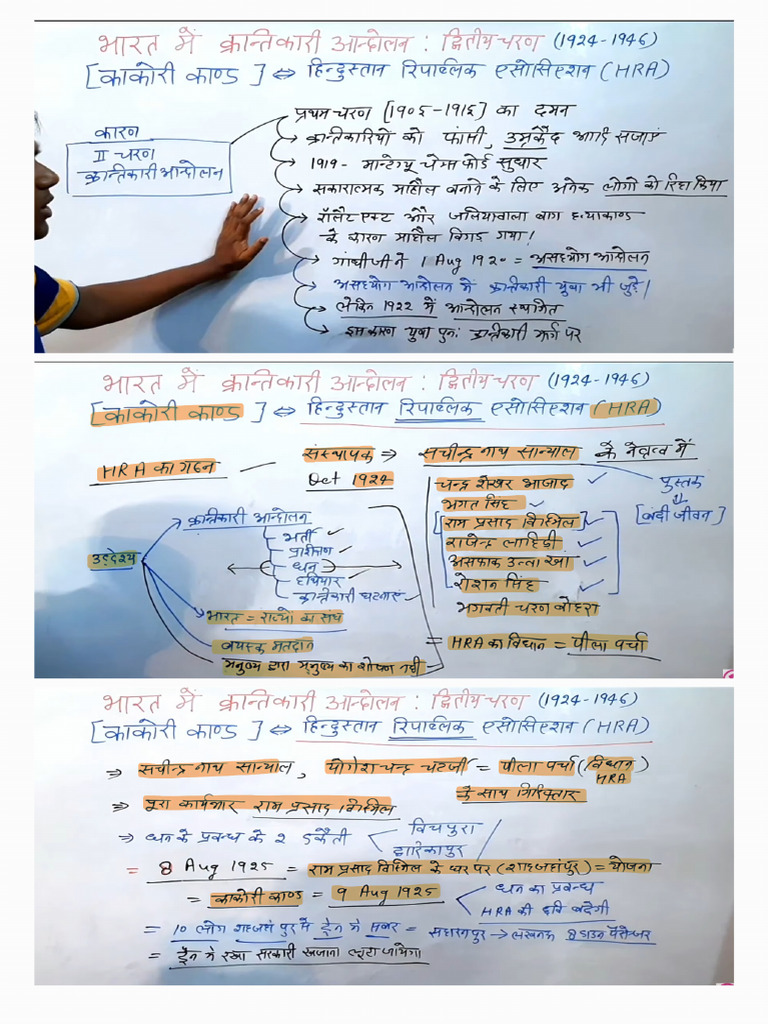 भारत में क्रान्तिकारी आन्दोलन : द्वितीय चरण (1924-1946)
[काकोरी काण्ड] ⇔ हिन्दुस्तान रिपब्लिक एसोसिएशन (HRA)
कारण
II चरण
क्रान्तिकारी आन्दोलन
प्रथम चरण [1905-1915] का दमन
→ क्रान्तिकारियों को फांसी, उम्रकैद आदि सजाएं
→ 1919- मान्टेग्यू चेम्सफोर्ड सुधार
→ सकारात्मक माहौल बनाने के लिए अनेक लोगो को रिहा किया
→ रॉलैट एक्ट और जलियावाला बाग हत्याकाण्ड
के कारण माहौल बिगड गया!
→ गांधीजी ने 1 Aug 1920 = असहयोग आन्दोलन
→ असहयोग आन्दोलन में क्रान्तिकारी युवा भी जुड़े।
→ लेकिन 1922 में आन्दोलन स्थगित
→ इस कारण युवा पुनः क्रान्तिकारी मार्ग पर
भारत में क्रान्तिकारी आन्दोलन : द्वितीय चरण (1924-1946)
[काकोरी काण्ड] ⇔ हिन्दुस्तान रिपब्लिक एसोसिएशन (HRA)
HRA का गठन — संस्थापक ⇒ सचीन्द्र नाथ सान्याल के नेतृत्व में
Oct 1924
चन्द्र शेखर आजाद ✓
भगत सिंह ✓
[राम प्रसाद बिस्मिल ✓
राजेन्द्र लाहिडी ✓
असफाक उल्ला खां ✓
रोशन सिंह ✓]
भगवती चरण वोहरा
पुस्तक
⇓
[बंदी जीवन]
= HRA का विधान = पीला पर्चा
उद्देश्य
क्रान्तिकारी आन्दोलन
भर्ती ✓
प्रशिक्षण ✓
धन
हथियार ✓
क्रान्तिकारी घटनाएं
भारत = राज्यो का संघ
वयस्क मतदान
मनुष्य द्वारा मनुष्य का शोषण नही
भारत में क्रान्तिकारी आन्दोलन : द्वितीय चरण (1924-1946)
[काकोरी काण्ड] ⇔ हिन्दुस्तान रिपब्लिक एसोसिएशन (HRA)
⇒ सचीन्द्र नाथ सान्याल, योगेश चन्द्र चटर्जी = पीला पर्चा (विधान HRA)
के साथ गिरफ्तार
⇒ पूरा कार्यभार राम प्रसाद बिस्मिल
⇒ धन के प्रबन्ध के 2 डकैती
बिचपुरा
द्वारिकापुर
= 8 Aug 1925 = राम प्रसाद बिस्मिल के घर पर (शाहजहांपुर) = योजना
= काकोरी काण्ड = 9 Aug 1925
धन का प्रबन्ध
HRA की छवि बढेगी
= 10 लोग शाहजहां पुर मे ट्रेन मे सवार = सहारनपुर → लखनऊ 8 डाउन पैसेन्जर
= ट्रेन मे रखा सरकारी खजाना लूटा जायेगा